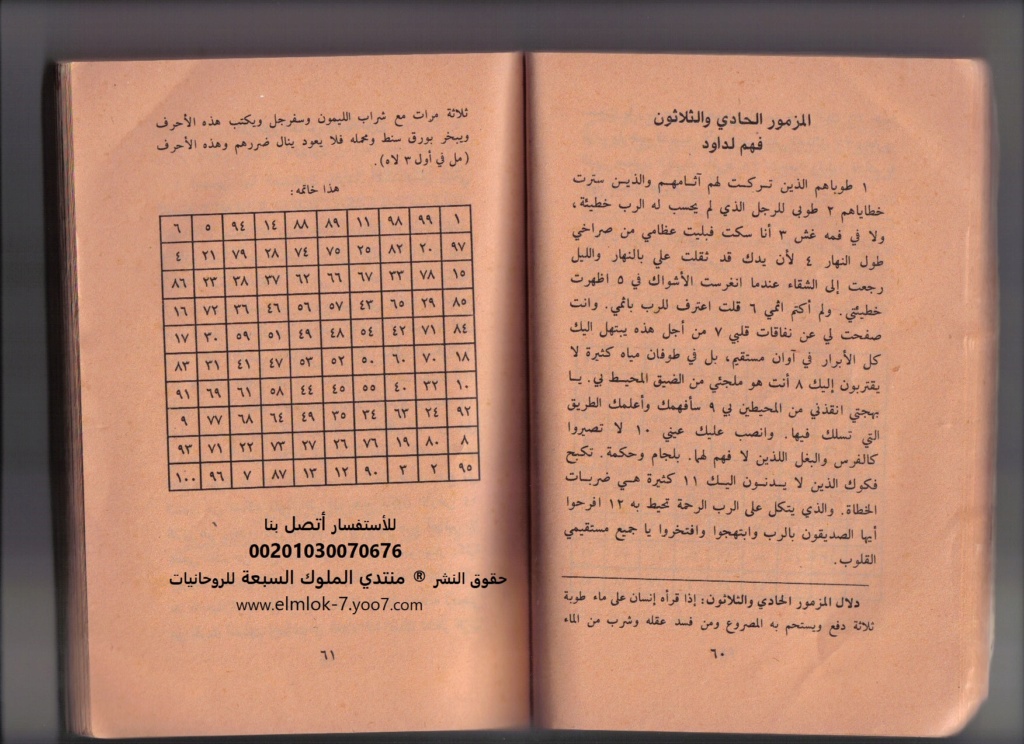 المزمور الحادي والثلاثون
فهم لداود
١ طوباهم الذين تركت لهم آثامهم والذين سترت
خطاياهم ٢ طوبى للرجل الذي لم يحسب له الرب خطيئة،
ولا في فمه غش ٣ أنا سكت فبليت عظامي من صراخي
طول النهار ٤ لأن يدك قد ثقلت علي بالنهار والليل
رجعت إلى الشقاء عندما انغرست الأشواك في ٥ اظهرت
خطيئتي. ولم أكتم اثمي ٦ قلت اعترف للرب باثمي. وانت
صفحت لي عن نفاقات قلبي ٧ من أجل هذه يبتهل اليك
كل الأبرار في آوان مستقيم، بل في طوفان مياه كثيرة لا
يقتربون إليك ٨ أنت هو ملجئي من الضيق المحيط بي. يا
بهجتي انقذني من المحيطين بي ٩ سأفهمك وأعلمك الطريق
التي تسلك فيها. وانصب عليك عيني ١٠ لا تصيروا
كالفرس والبغل اللذين لا فهم لهما. بلجام وحكمة. تكبح
فكوك الذين لا يدنون اليك ١١ كثيرة هي ضربات
الخطاة. والذي يتكل على الرب الرحمة تحيط به ١٢ افرحوا
أيها الصديقون بالرب وابتهجوا وافتخروا يا جميع مستقيمي
القلوب.
دلال المزمور الحادي والثلاثون: إذا قرأه إنسان على ماء طوبة
ثلاثة دفع ويستحم به المصروع ومن فسد عقله وشرب من الماء
٦٠
ثلاثة مرات مع شراب الليمون وسفرجل ويكتب هذه الأحرف
ويبخر بورق سنط ومحمله فلا يعود ينال ضررهم وهذه الأحرف
(مل في أول ٣ لاه).
هذا خاتمه:
١ ٩٩ ٩٨ ١١ ٨٩ ٨٨ ١٤ ٩٤ ٥ ٦
٩٧ ٢٠ ٨٢ ٢٥ ٧٥ ٧٤ ٢٨ ٧٩ ٢١ ٤
١٥ ٧٨ ٣٣ ٦٧ ٦٦ ٦٢ ٣٧ ٣٨ ٢٣ ٨٦
٨٥ ٢٩ ٦٥ ٤٣ ٥٧ ٥٦ ٤٦ ٣٦ ٧٢ ١٦
٨٤ ٧١ ٤٢ ٥٤ ٤٨ ٤٩ ٥١ ٥٩ ٣٠ ١٧
١٨ ٧٠ ٦٠ ٥٠ ٥٢ ٥٣ ٤٧ ٤١ ٣١ ٨٣
١٠ ٣٢ ٤٠ ٥٥ ٤٥ ٤٤ ٥٨ ٦١ ٦٩ ٩١
٩٢ ٢٤ ٦٣ ٣٤ ٣٥ ٤٩ ٦٤ ٦٨ ٧٧ ٩
٨ ٨٠ ١٩ ٧٦ ٢٦ ٢٧ ٧٣ ٢٢ ٧١ ٩٣
٩٥ ٢ ٣ ٩٠ ١٢ ١٣ ٨٧ ٧ ٩٦ ١٠٠
للأستفسار أتصل بنا
00201030070676
حقوق النشر ® منتدي الملوك السبعة للروحانيات
www.elmlok-7.yoo7.com
٦١